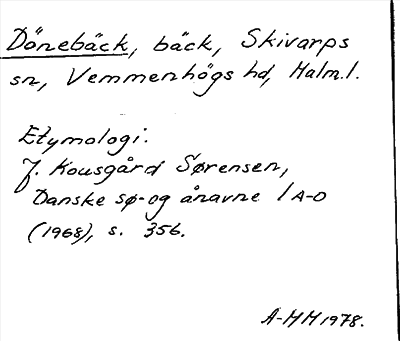 Dönebäck, bäck, Skivarps
sn, Vemmenhögs hd, Malm.l.
Etymologi:
J. Kousgård Sørensen,
Danske sø- og ånavne 1 A-D
(1968), s. 356.
A-MM 1978.